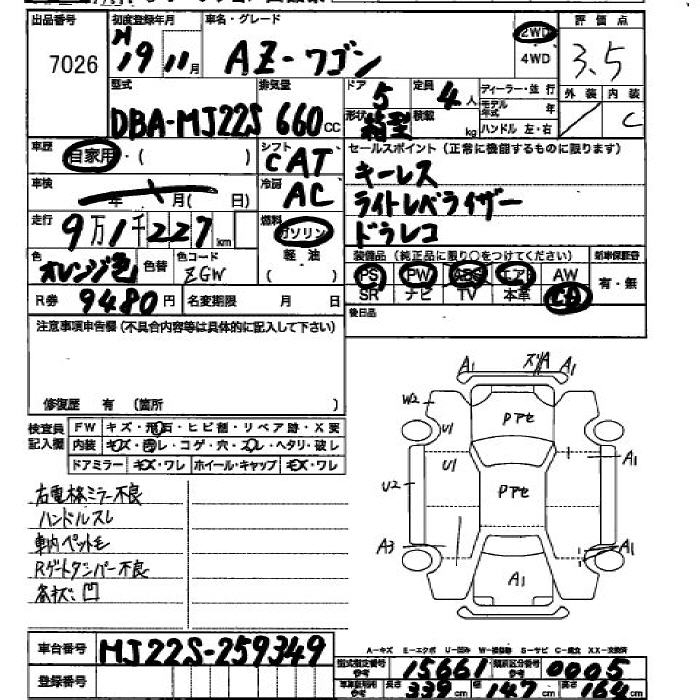 出品番号 初度登録年月 車名・グレード 2WD 評価点
7026 H19 11月 AZ-ワゴン 4WD 3.5
型式 排気量 ドア 定員 ディーラー・並行 外装 内装
DBA-MJ22S 660cc 5 4人 モデル年式 年 C
形状 箱型 積載 kg ハンドル 左・右
車歴 自家用・( ) シフト CAT セールスポイント(正常に機能するものに限ります)
車検 年 月( 日) 冷房 AC キーレス
ライトレベライザー
走行 9万1千227km 燃料 ガソリン ドラレコ
色 オレンジ色 色替 色コード ZGW 軽油 ( ) 装備品(純正品に限り○をつけてください) 新車保証書
PS PW ABS エアB AW 有・無
R券 9480円 名変期限 月 日 SR ナビ TV 本革 CD
注意事項申告欄(不具合内容等は具体的に記入して下さい) 後日品
修復歴 有 (箇所 )
検査員記入欄 FW キズ・飛石・ヒビ割・リペア跡・X要
内装 キズ・凹レ・コゲ・穴・スレ・ヘタリ・破レ
ドアミラー キズ・ワレ ホイール・キャップ キズ・ワレ
A1 ズリA A1
W2 Pアセ
U1
U1 A1
U2 Pアセ
A3 A1
A1
右電格ミラー不良
ハンドルスレ
車内ペット毛
Rゲートダンパー不良
各キズ・凹
A-キズ E-エクボ U-凹み W-補修跡 S-サビ C-腐食 XX-交換済
車台番号 MJ22S-259349
型式指定番号 15661 類別区分番号 0005
登録番号 長さ 339cm 幅 147cm 高さ 164cm